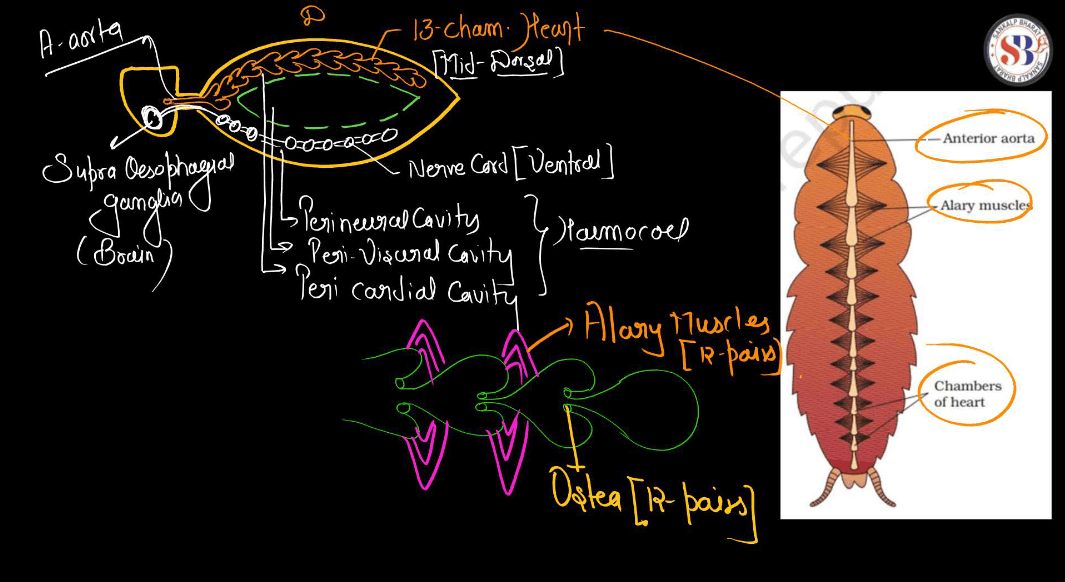 D
A-aorta
13-cham. Heart
[Mid-Dorsal]
Supra Oesophageal
ganglia
(Brain)
Nerve Cord [Ventral]
Perineural Cavity
Peri-Visceral Cavity
Peri cardial Cavity
Haemocoel
Alary Muscles
[12-pairs]
Ostea [12-pairs]
SANKALP BHARAT
SB
SANKALP BHARAT
Anterior aorta
Alary muscles
Chambers
of heart